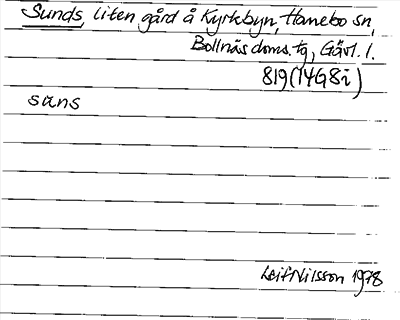 Sunds, liten gård å Kyrkbyn, Hanebo sn,
Bollnäs doms.tg, Gävl. l.
819(14G8i)
suns
Leif Nilsson 1978